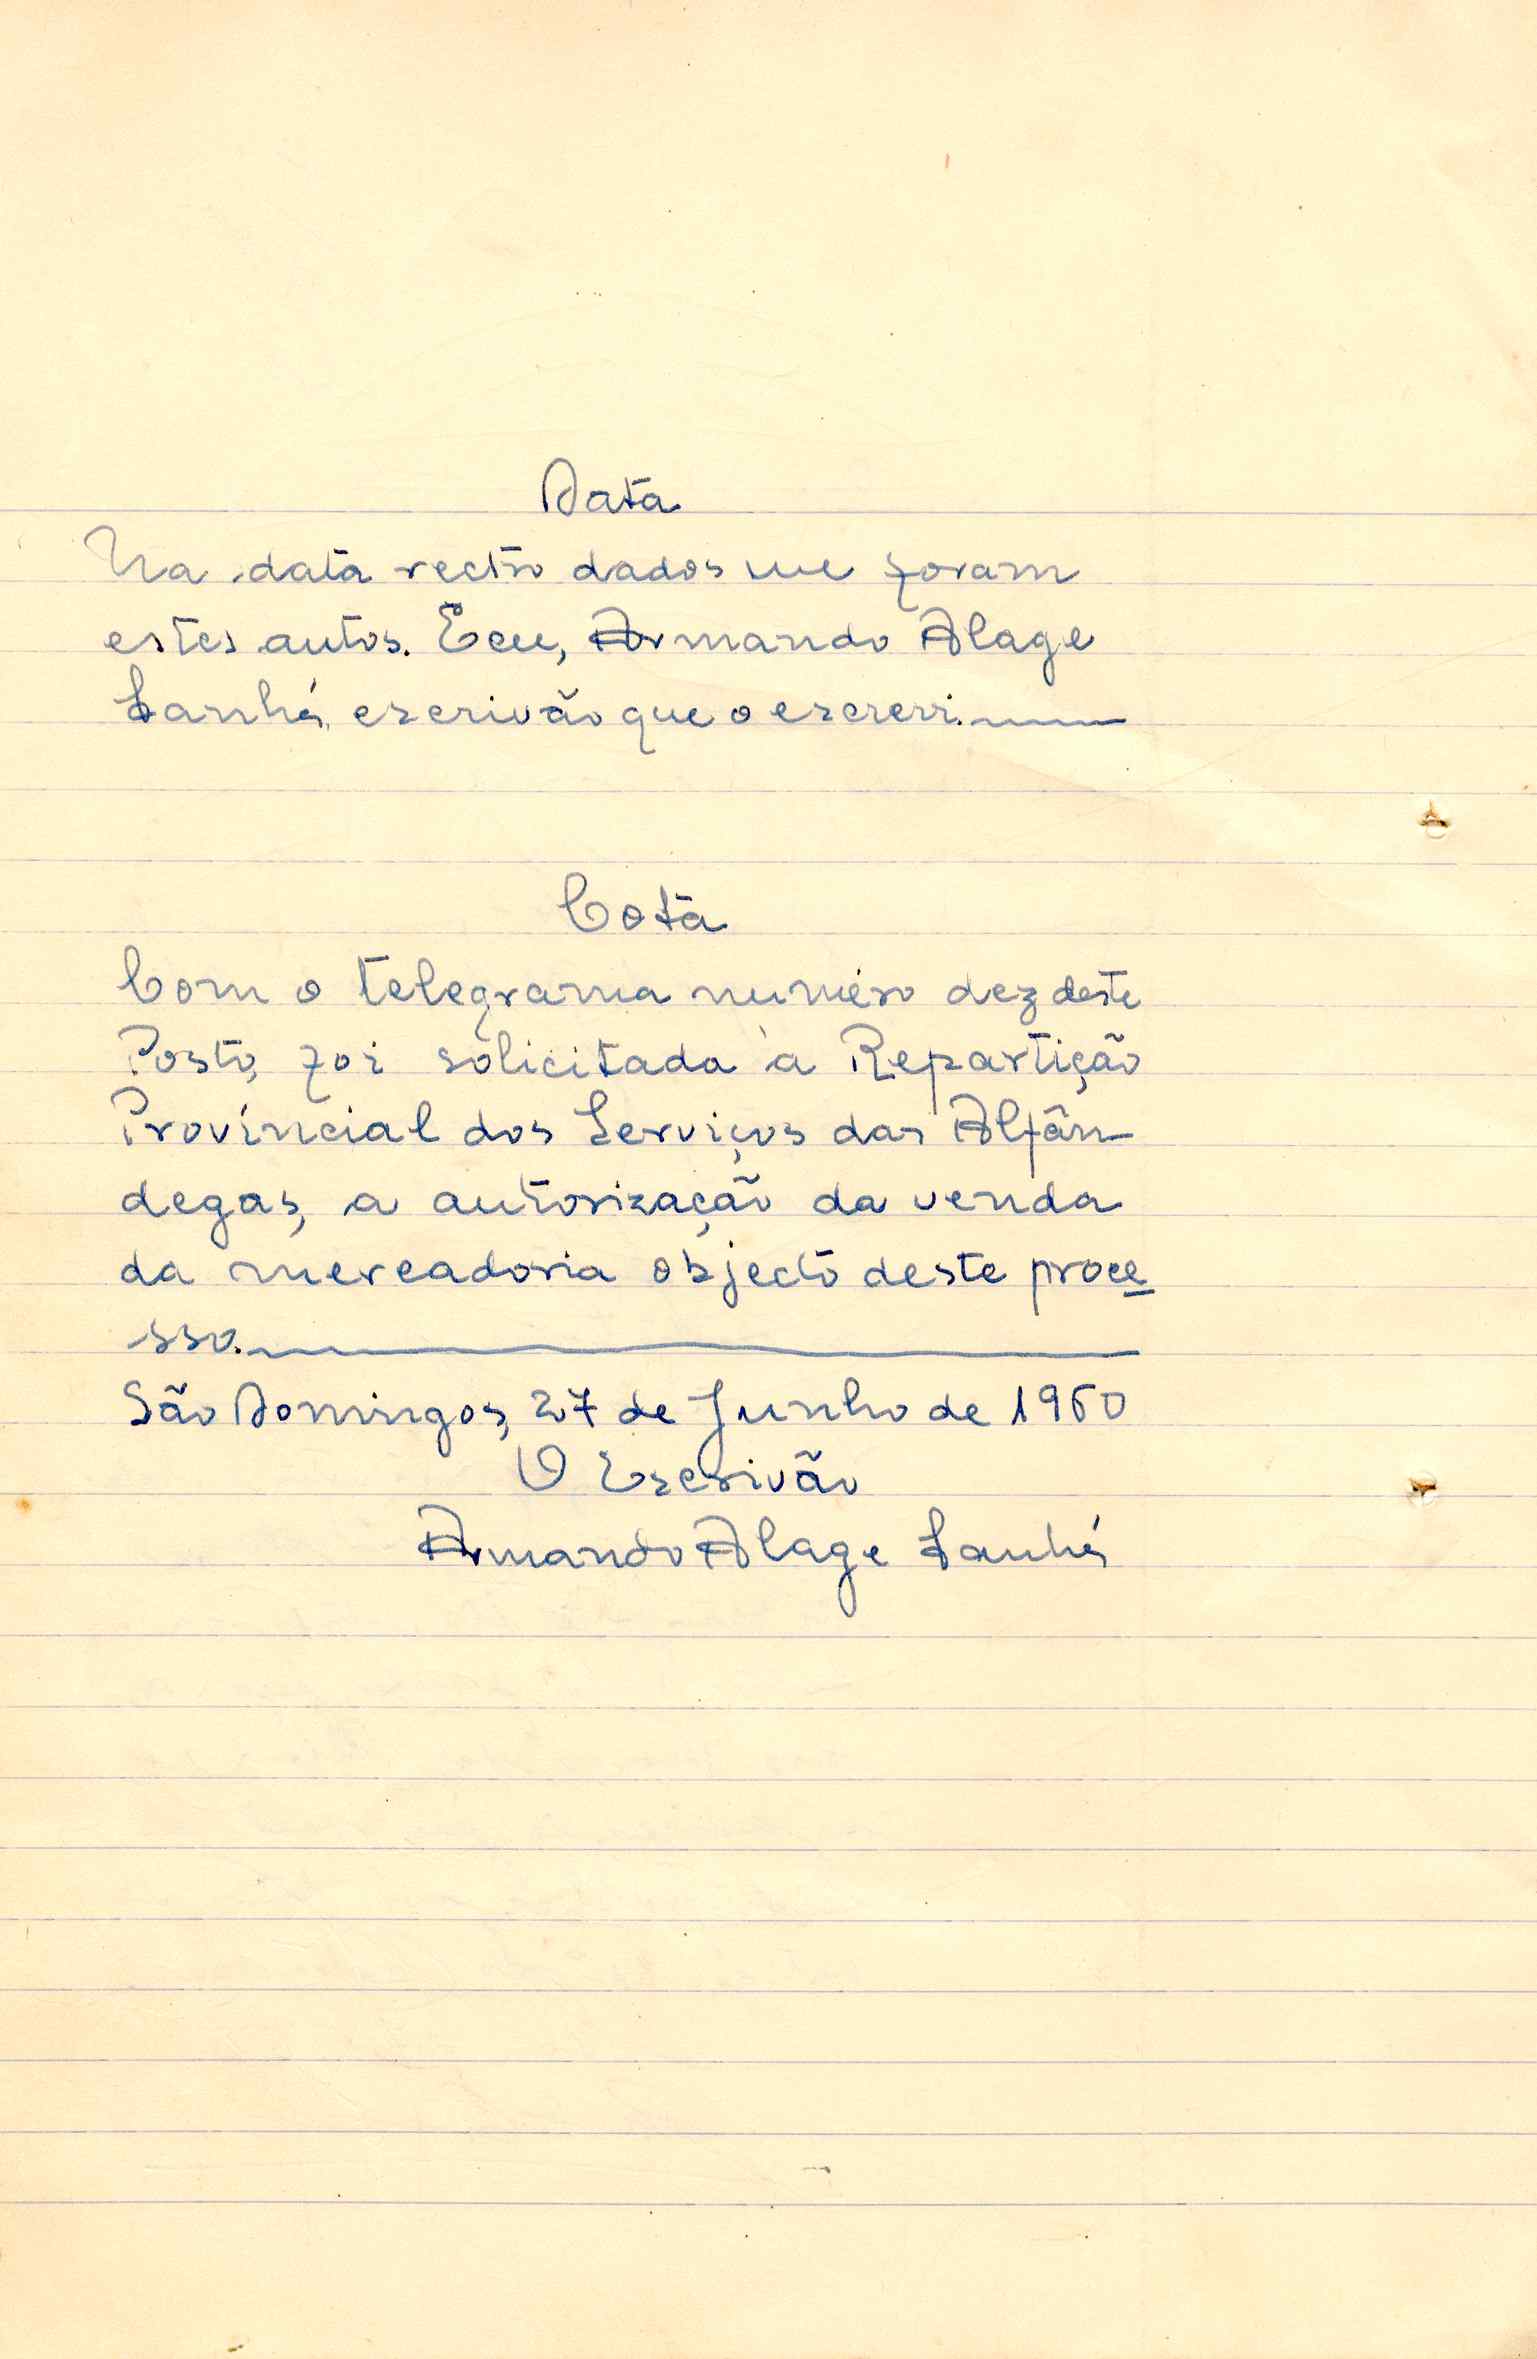 Data
Na data rectro dados me foram
estes autos. E eu, Armando Alage
Sanhá, escrivão que o escrevi.
Cota
Com o telegrama número dez deste
Posto, foi solicitada à Repartição
Províncial dos Serviços das Alfân
degas, a autorização da venda
da mercadoria objecto deste proce
sso.
São Domingos, 27 de Junho de 1960
O Escrivão
Armando Alage Sanhá